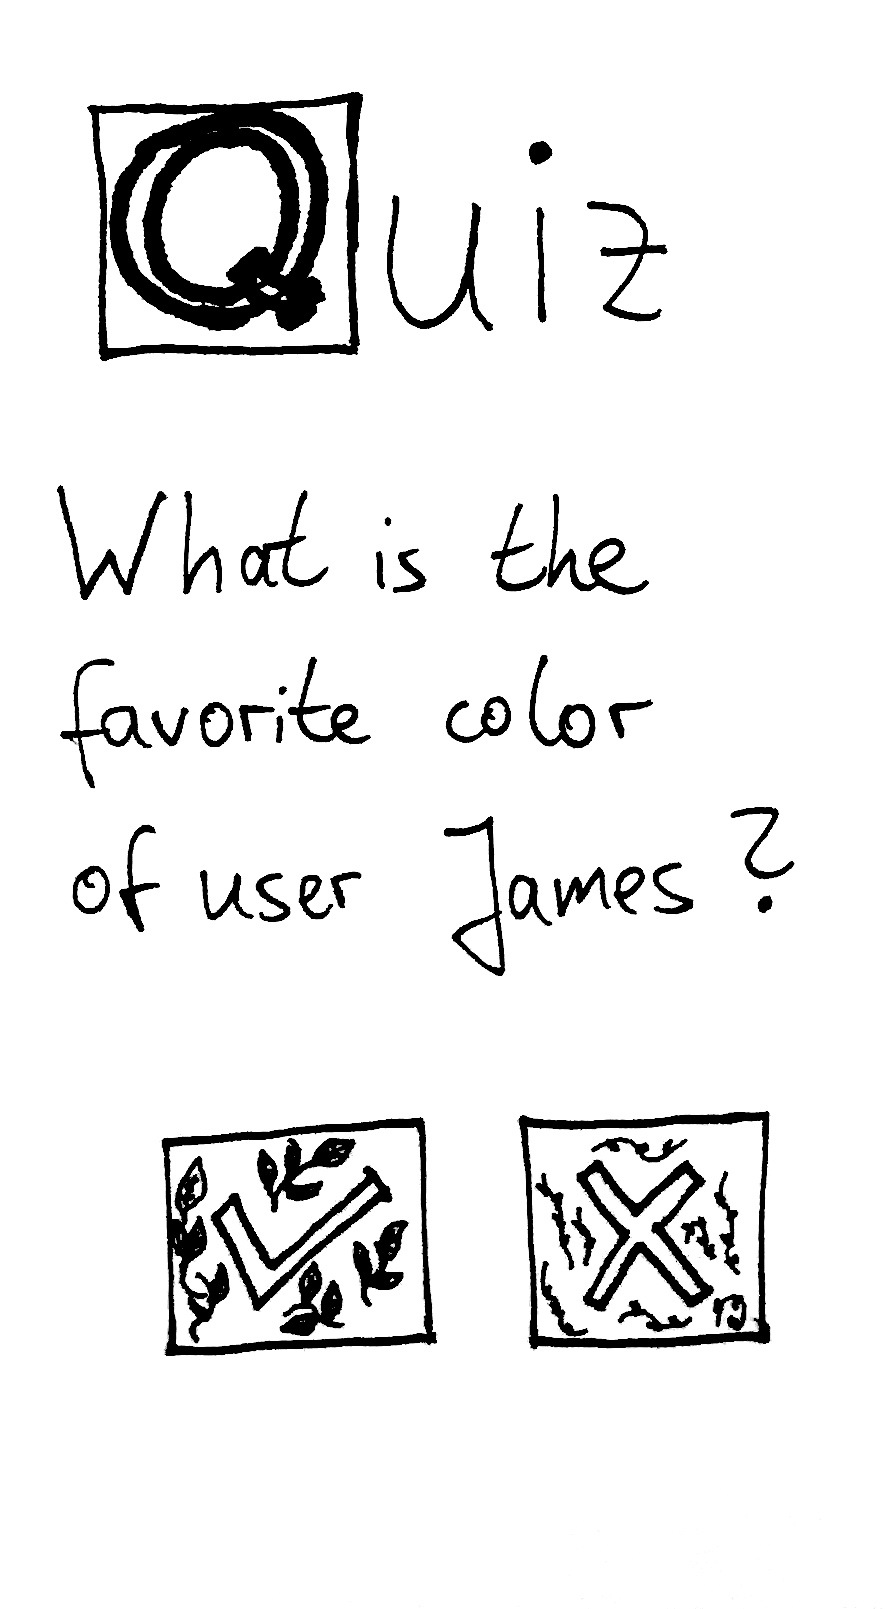 Quiz
What is the
favorite color
of user James?